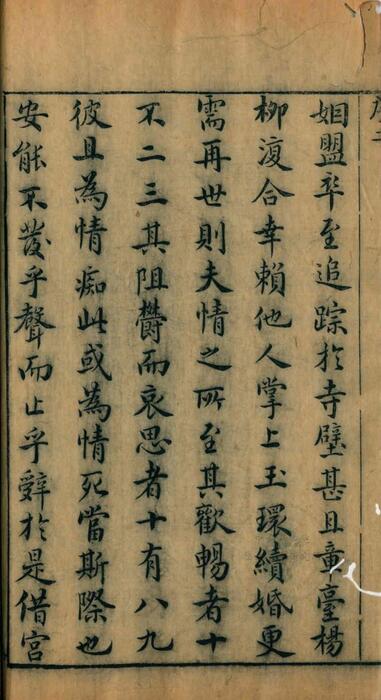 姻盟卒至追踪於寺壁甚且章臺楊
柳復合幸賴他人掌上玉環續婚更
需再世則夫情之所至其歡暢者十
不二三其阻欝而哀思者十有八九
彼且為情痴此或為情死當斯際也
安能不發乎聲而止乎辭於是借宮